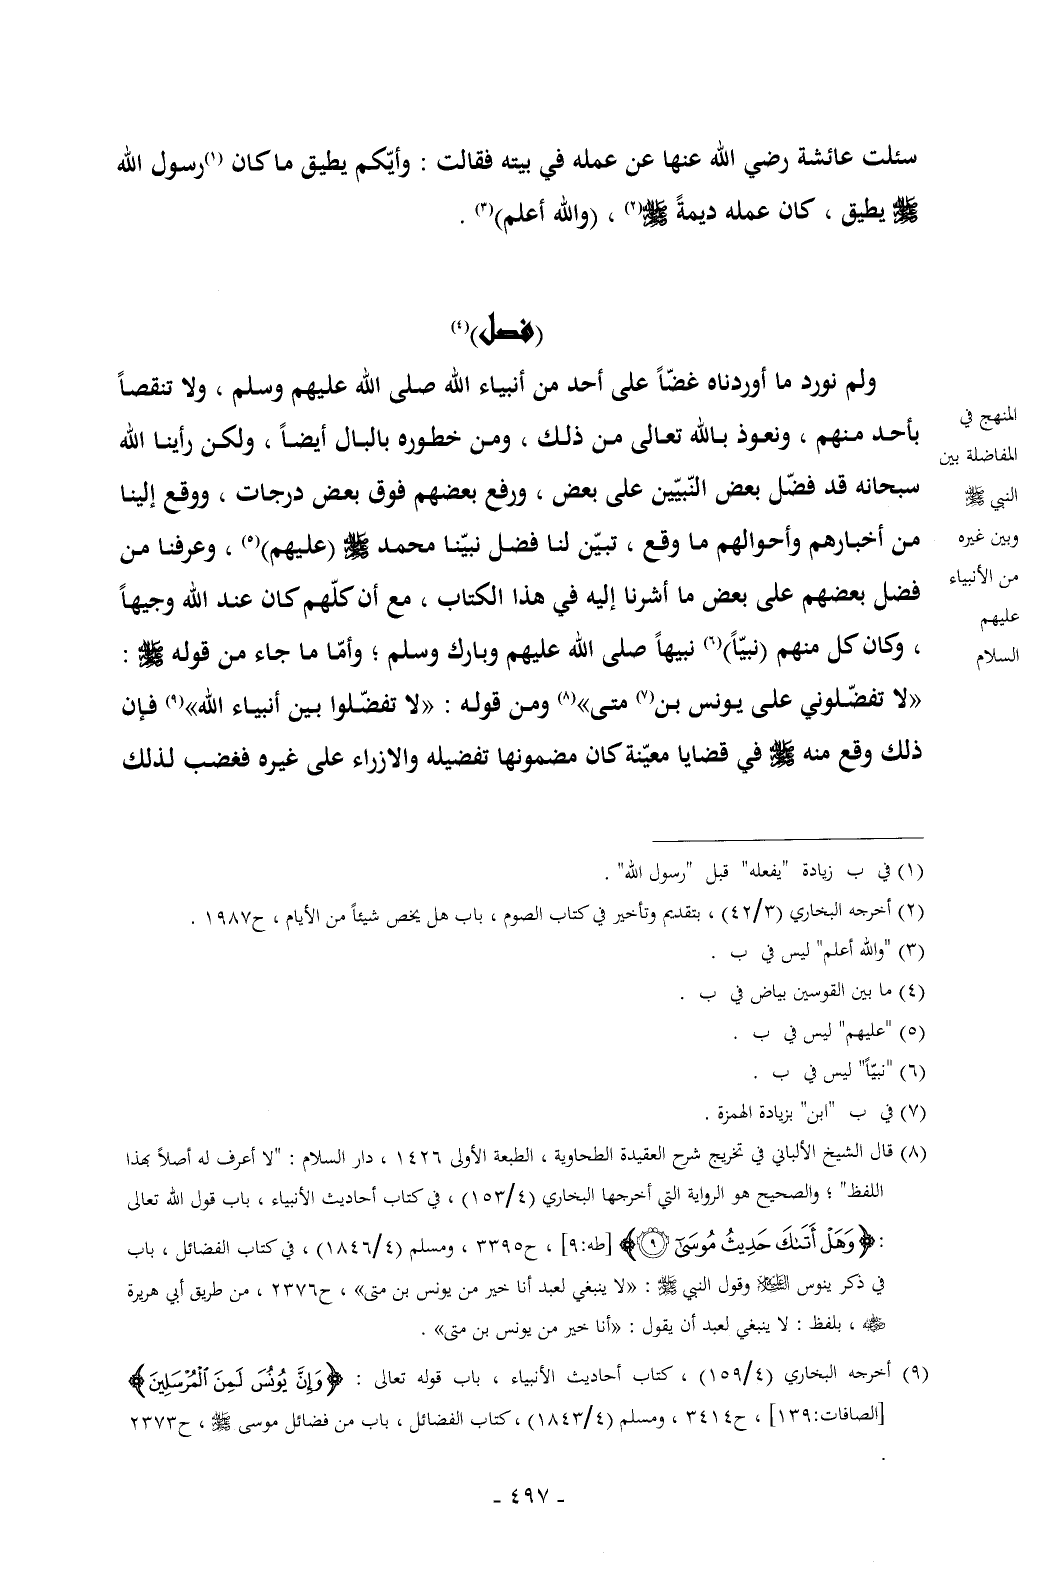 سئلت عائشة رضي الله عنها عن عمله في بيته فقالت : وأيّكم يطيق ما كان (١)رسول الله
ﷺ يطيق ، كان عمله ديمةً ﷺ(٢) ، (والله أعلم)(٣) .
(فصل)(٤)
ولم نورد ما أوردناه غضّاً على أحد من أنبياء الله صلى الله عليهم وسلم ، ولا تنقصاً
بأحد منهم ، ونعوذ بالله تعالى من ذلك ، ومن خطوره بالبال أيضاً ، ولكن رأينا الله
سبحانه قد فضّل بعض النّبيّين على بعض ، ورفع بعضهم فوق بعض درجات ، ووقع إلينا
من أخبارهم وأحوالهم ما وقع ، تبيّن لنا فضل نبيّنا محمد ﷺ (عليهم)(٥) ، وعرفنا من
فضل بعضهم على بعض ما أشرنا إليه في هذا الكتاب ، مع أن كلّهم كان عند الله وجيهاً
، وكان كل منهم (نبيّاً)(٦) نبيهاً صلى الله عليهم وبارك وسلم ؛ وأمّا ما جاء من قوله ﷺ :
«لا تفضّلوني على يونس بن(٧) متى»(٨) ومن قوله : «لا تفضّلوا بين أنبياء الله»(٩) فإن
ذلك وقع منه ﷺ في قضايا معيّنة كان مضمونها تفضيله والازراء على غيره فغضب لذلك
المنهج في
المفاضلة بين
النبي ﷺ
وبين غيره
من الأنبياء
عليهم
السلام
(١) في ب زيادة "يفعله" قبل "رسول الله" .
(٢) أخرجه البخاري (٤٢/٣) ، بتقديم وتأخير في كتاب الصوم ، باب هل يخص شيئاً من الأيام ، ح١٩٨٧ .
(٣) "والله أعلم" ليس في ب .
(٤) ما بين القوسين بياض في ب .
(٥) "عليهم" ليس في ب .
(٦) "نبيّاً" ليس في ب .
(٧) في ب "ابن" بزيادة الهمزة .
(٨) قال الشيخ الألباني في تخريج شرح العقيدة الطحاوية ، الطبعة الأولى ١٤٢٦ ، دار السلام : "لا أعرف له أصلاً بهذا
اللفظ" ؛ والصحيح هو الرواية التي أخرجها البخاري (١٥٣/٤) ، في كتاب أحاديث الأنبياء ، باب قول الله تعالى
: ﴿وَهَلْ أَتَىٰكَ حَدِيثُ مُوسَىٰٓ ۝٩﴾ [طه:٩] ، ح٣٣٩٥ ، ومسلم (١٨٤٦/٤) ، في كتاب الفضائل ، باب
في ذكر ينوس عليه السلام وقول النبي ﷺ : «لا ينبغي لعبد أنا خير من يونس بن متى» ، ح٢٣٧٦ ، من طريق أبي هريرة
رضي الله عنه ، بلفظ : لا ينبغي لعبد أن يقول : «أنا خير من يونس بن متى» .
(٩) أخرجه البخاري (١٥٩/٤) ، كتاب أحاديث الأنبياء ، باب قوله تعالى : ﴿وَإِنَّ يُونُسَ لَمِنَ ٱلْمُرْسَلِينَ﴾
[الصافات:١٣٩] ، ح٣٤١٤ ، ومسلم (١٨٤٣/٤) ، كتاب الفضائل ، باب من فضائل موسى ﷺ ، ح٢٣٧٣
.
- ٤٩٧ -